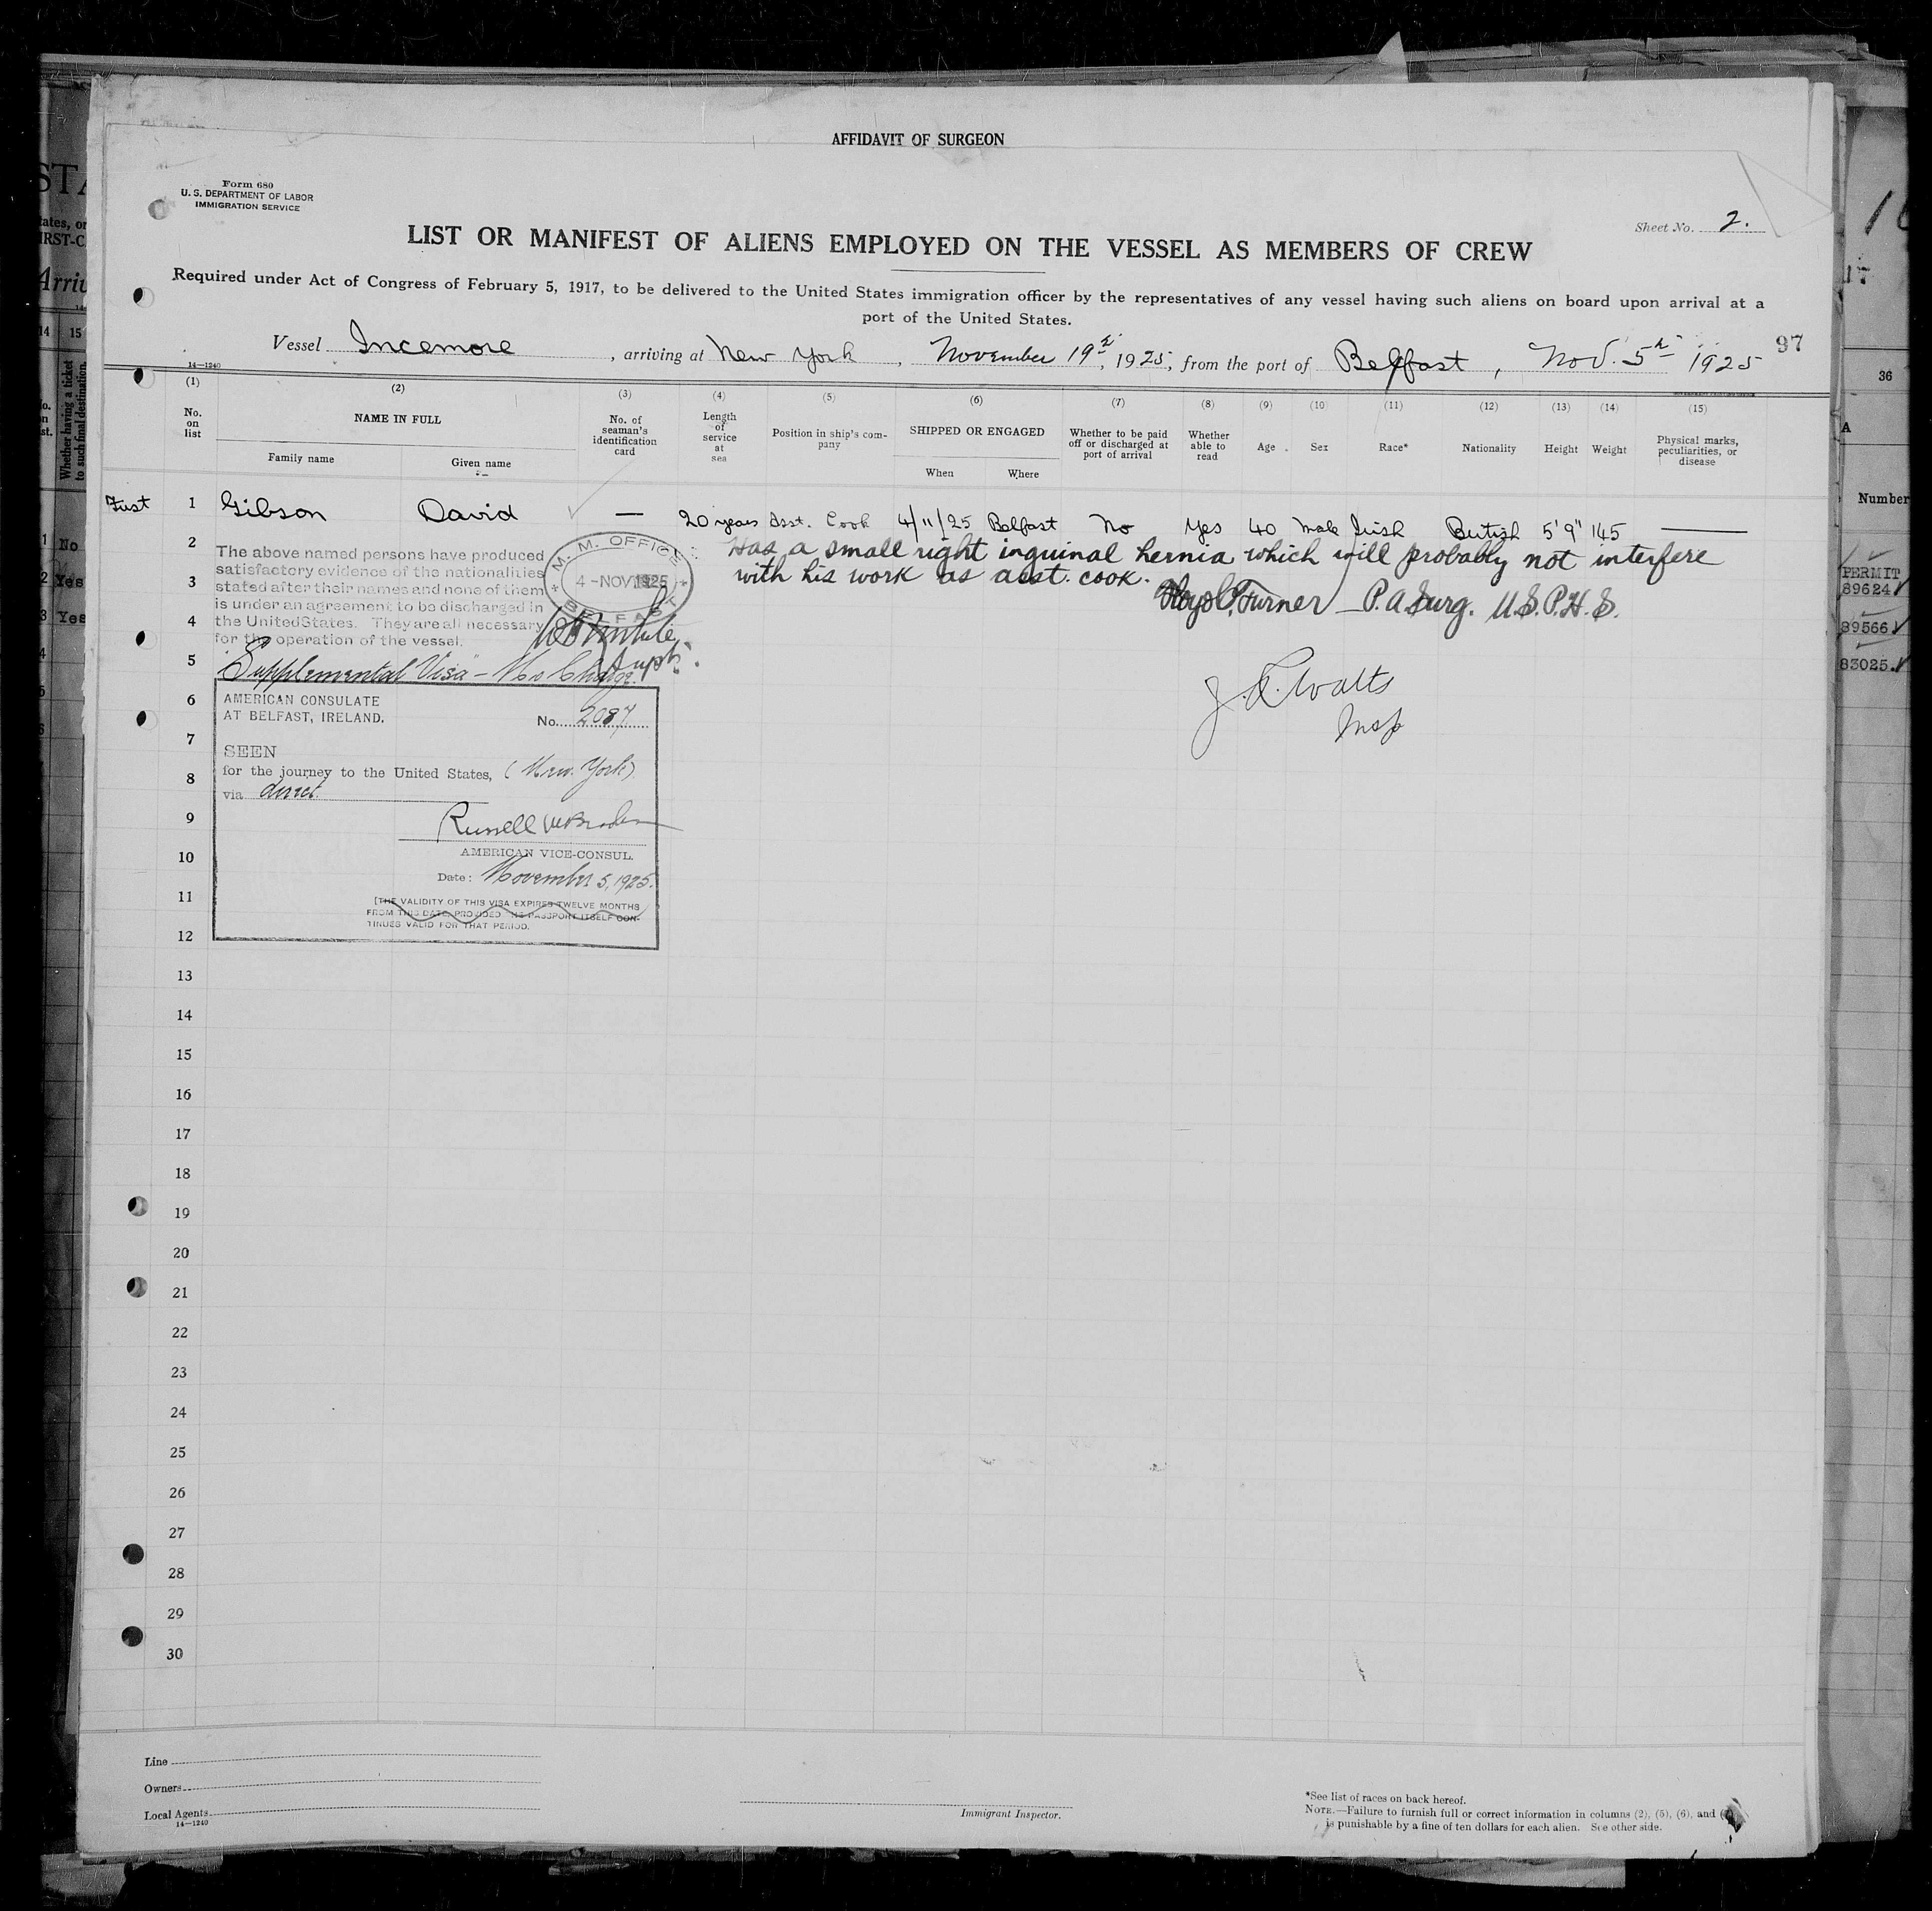 AFFIDAVIT OF SURGEON
Form 680
U. S. DEPARTMENT OF LABOR
IMMIGRATION SERVICE
Sheet No. 2.
LIST OR MANIFEST OF ALIENS EMPLOYED ON THE VESSEL AS MEMBERS OF CREW
Required under Act of Congress of February 5, 1917, to be delivered to the United States immigration officer by the representatives of any vessel having such aliens on board upon arrival at a
port of the United States.
97
Vessel Incemore, arriving at New York, November 19th, 1925, from the port of Belfast, Nov. 5th 1925
14—1240
(1) (2) (3) (4) (5) (6) (7) (8) (9) (10) (11) (12) (13) (14) (15)
No. on list
NAME IN FULL
Family name
Given name
No. of seaman's identification card
Length of service at sea
Position in ship's company
SHIPPED OR ENGAGED
When
Where
Whether to be paid off or discharged at port of arrival
Whether able to read
Age
Sex
Race*
Nationality
Height
Weight
Physical marks, peculiarities, or disease
1 Gibson David — 20 years Asst. Cook 4/11/25 Belfast No Yes 40 Male Irish British 5'9" 145 —
Has a small right inguinal hernia which will probably not interfere
with his work as asst. cook.
Turner — P.A. Surg. U.S.P.H.S.
J. Watts
Insp
2
3
4
5
6
7
8
9
10
11
12
13
14
15
16
17
18
19
20
21
22
23
24
25
26
27
28
29
30
The above named persons have produced
satisfactory evidence of the nationalities
stated after their names and none of them
is under an agreement to be discharged in
the United States. They are all necessary
for the operation of the vessel.
M. M. OFFICE
4 - NOV 1925
BELFAST
Supt.
"Supplemental Visa" - No Charge.
AMERICAN CONSULATE
AT BELFAST, IRELAND.
No. 2087
SEEN
for the journey to the United States, (New York)
via direct.
Russell
AMERICAN VICE-CONSUL.
Date: November 5, 1925.
(THE VALIDITY OF THIS VISA EXPIRES TWELVE MONTHS
FROM THIS DATE, PROVIDED THE PASSPORT ITSELF CON-
TINUES VALID FOR THAT PERIOD.
Line
Owners
Local Agents
14—1240
Immigrant Inspector.
*See list of races on back hereof.
NOTE.—Failure to furnish full or correct information in columns (2), (5), (6), and
is punishable by a fine of ten dollars for each alien. See other side.
14 15
Whether having a ticket
to such final destination.
1 No
2 Yes
3 Yes
36
Number
PERMIT
89624
89566
83025